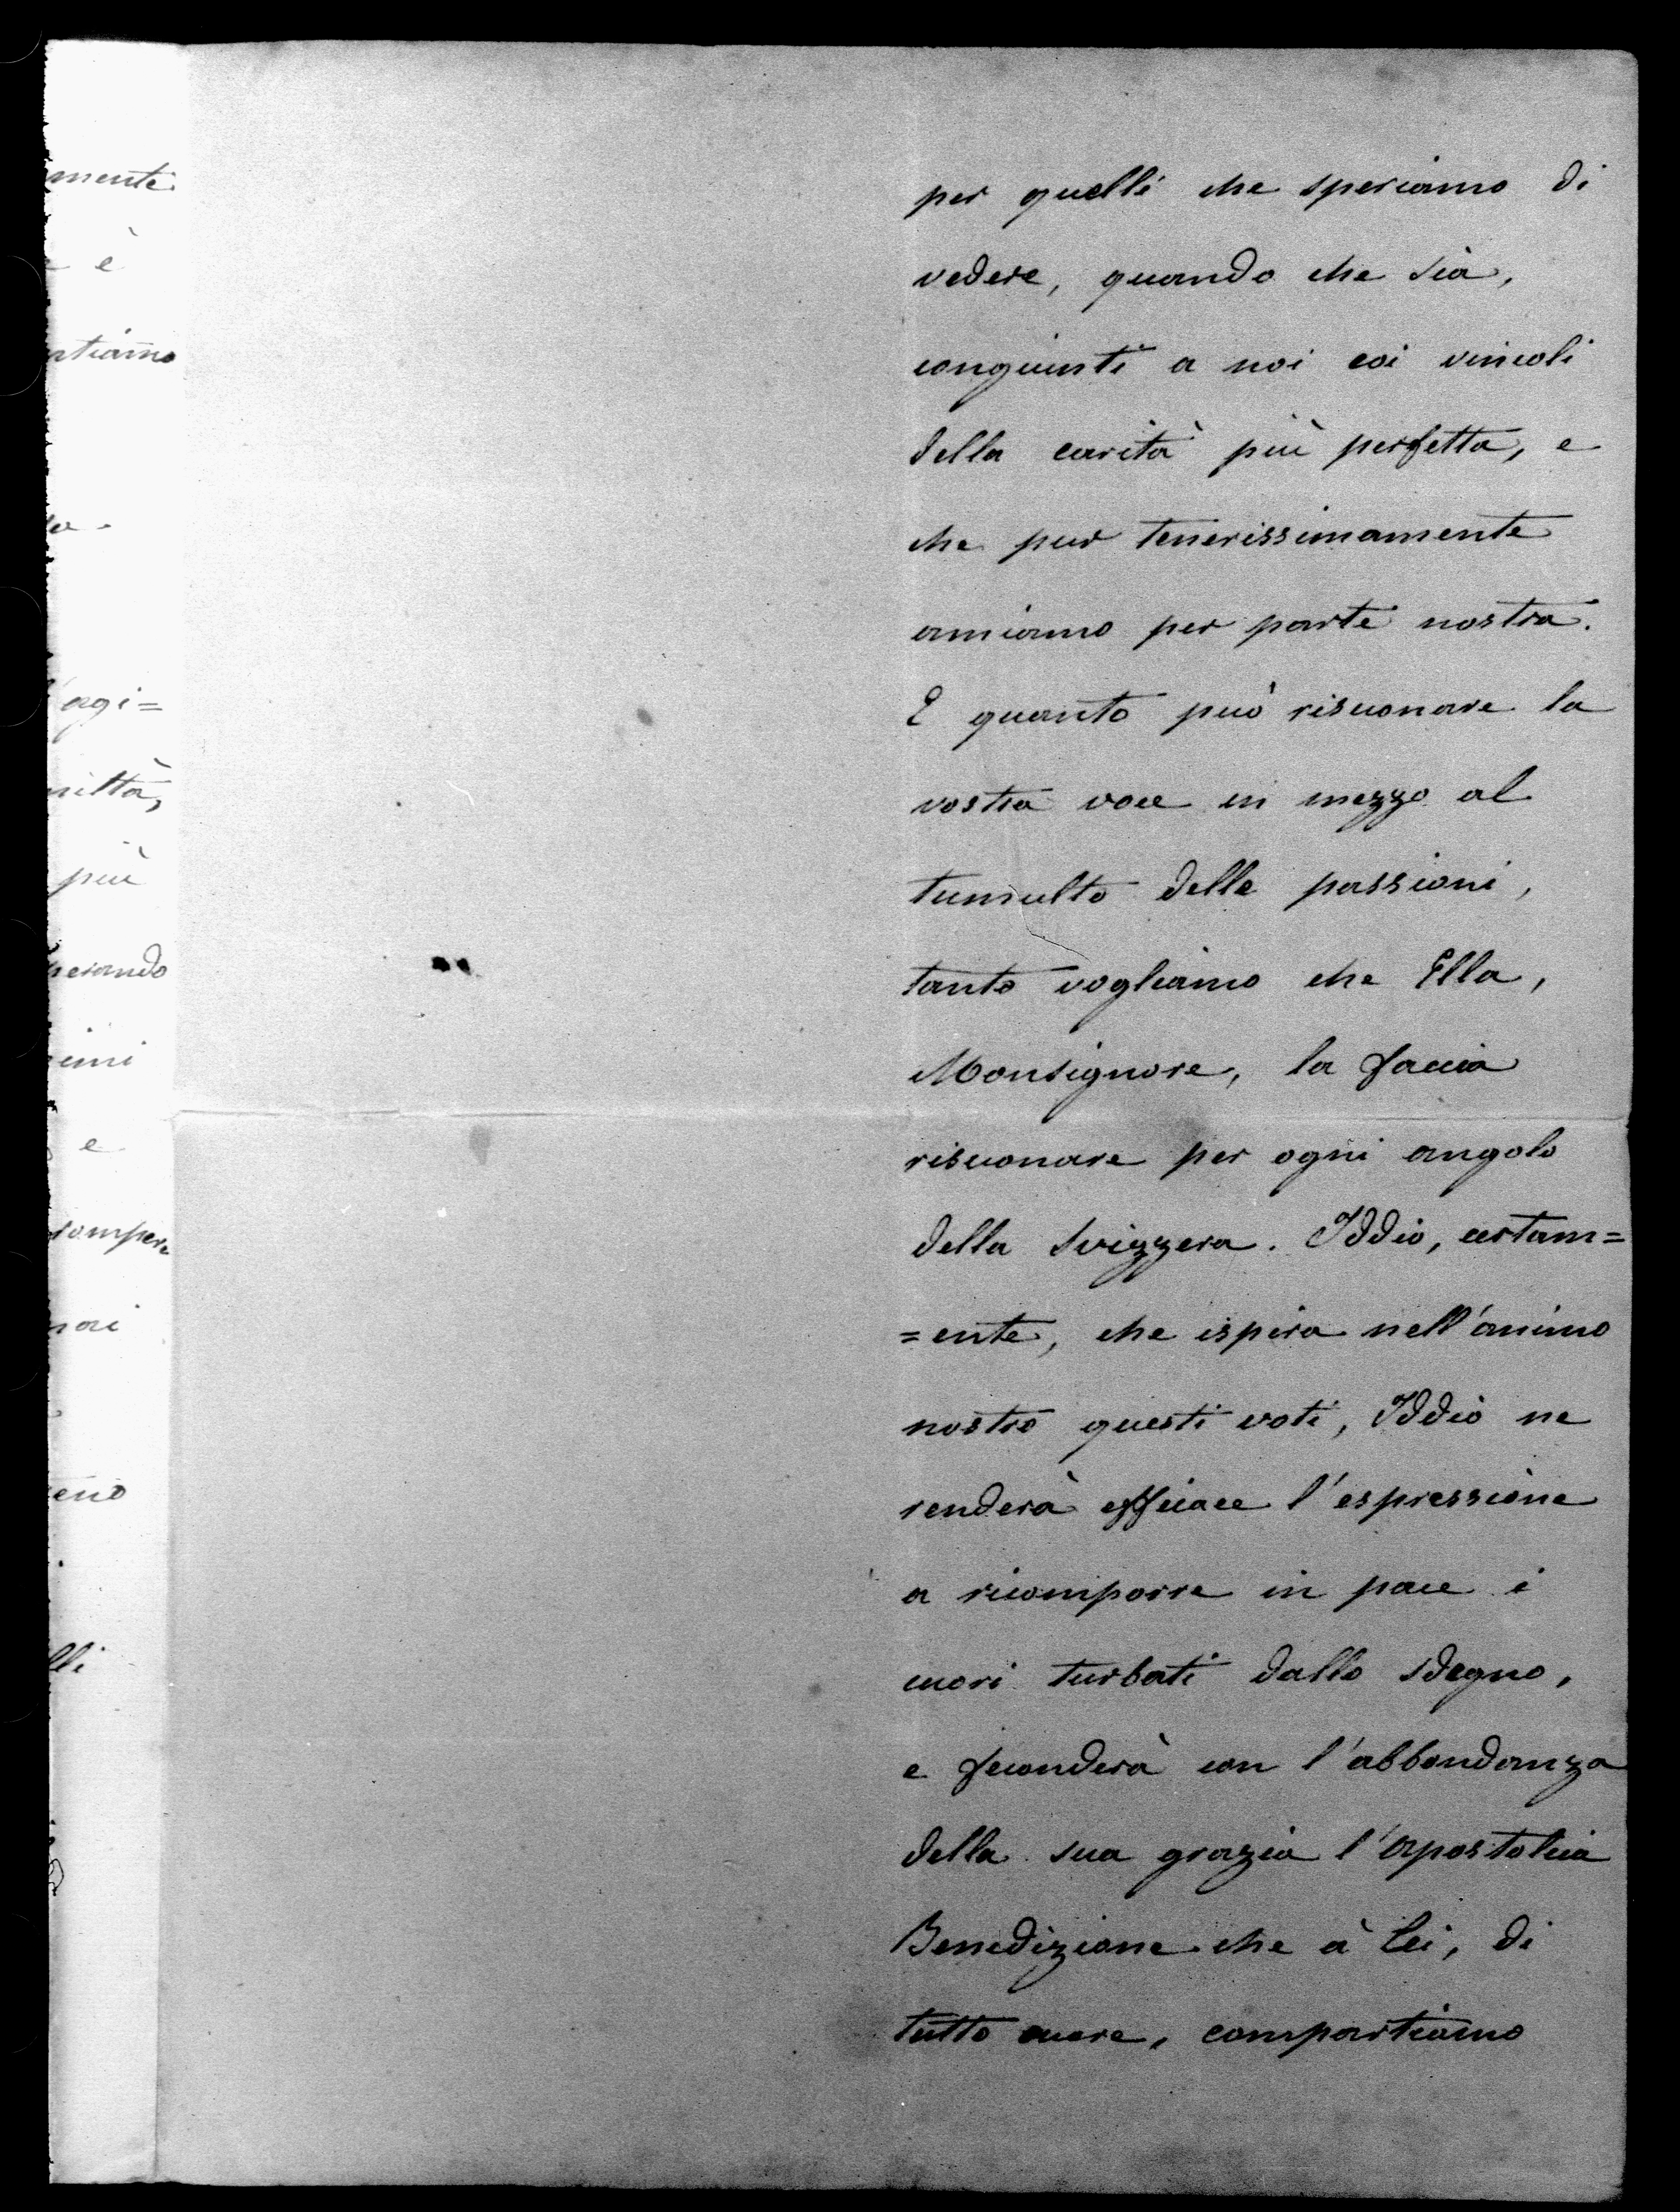 mente
è
ntiamo
agi=
più
perando
e
per quelli che speriamo di
vedere, quando che sia,
congiunti a noi coi vincoli
della carità più perfetta, e
che pur tenerissimamente
amiamo per parte nostra.
E quanto può risuonare la
nostra voce in mezzo al
tumulto delle passioni,
tanto vogliamo che Ella,
Monsignore, la faccia
risuonare per ogni angolo
della Svizzera. Iddio, certam=
=ente, che ispira nell'animo
nostro questi voti, Iddio ne
renderà efficace l'espressione
a ricomporre in pace i
cuori turbati dallo sdegno,
e feconderà con l'abbondanza
della sua grazia l'Apostolica
Benedizione che à Lei, di
tutto cuore, compartiamo